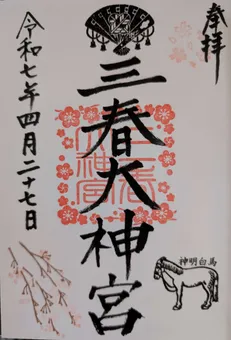 奉拝
三春大神宮
三春大神宮
令和七年四月二十七日
神明白馬